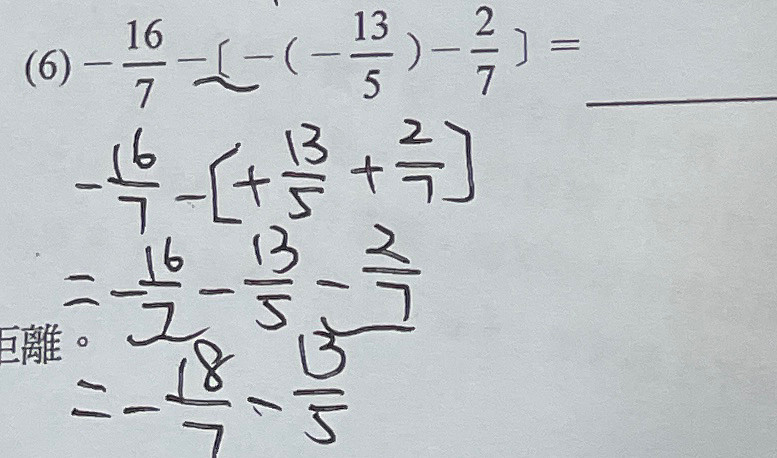 (6) −16/7 −〔−(−13/5)−2/7〕=
−16/7 −[+13/5 + 2/7]
= −16/7 − 13/5 − 2/7
距離。
= −18/7 − 13/5